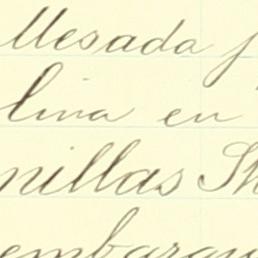 llesada p
lina en
nillas Sh
embarqu